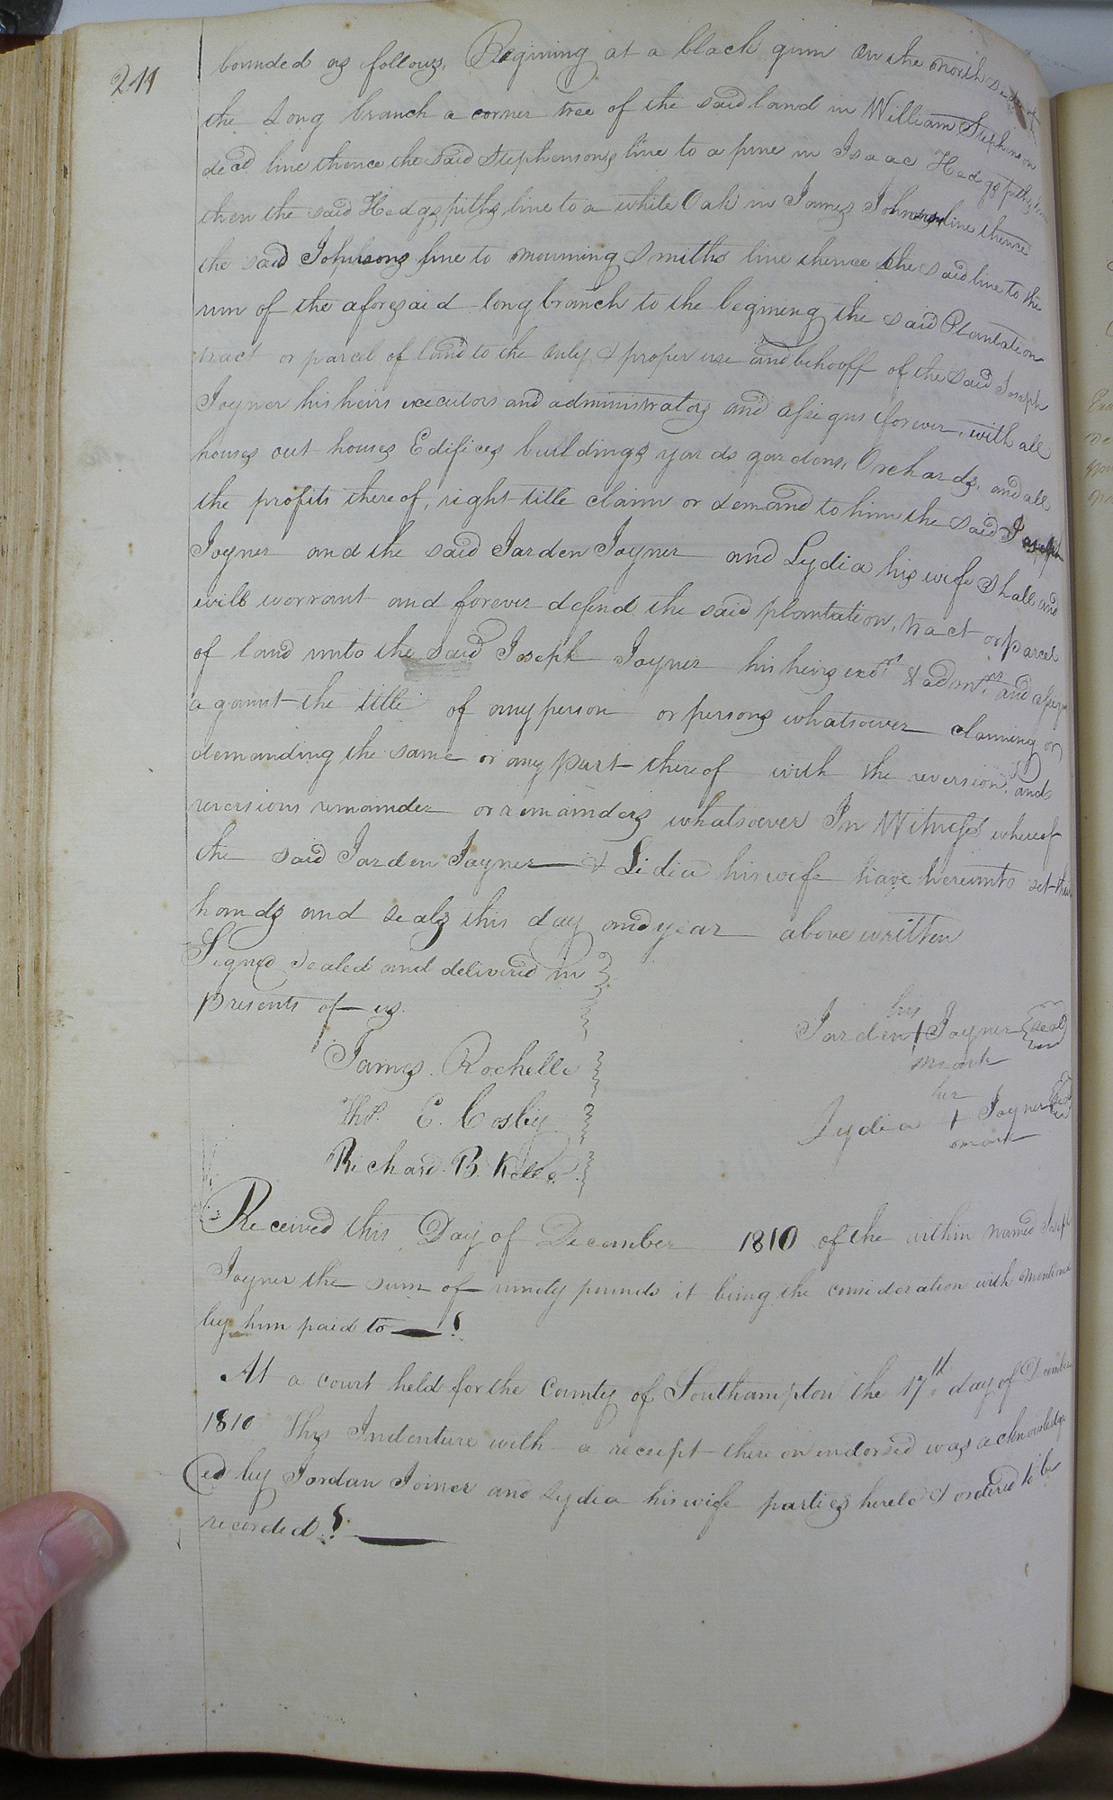 241
bounded as follows, Begining at a black gum on the north side of
the Long branch a corner tree of the said land in William Stephenson
decd line thence the said Stephensons line to a pine in Isaac Hedgspiths line
then the said Hedgspiths line to a white Oak in James Johnsons line thence
the said Johnsons line to mourning Smiths line thence the said line to the
run of the aforesaid long branch to the begining the said Plantation
tract or parcel of land to the only & proper use and behooff of the said Joseph
Joyner his heirs executors and administrators and assigns forever, with all
houses out houses Edifices buildings yards gardens, Orchards, and all
the profits thereof, right title claim or demand to him the said Joseph
Joyner and the said Jarden Joyner and Lydia his wife shall and
will worrant and forever defend the said plantation, tract or parcel
of land unto the said Joseph Joyner his heirs exors & admrs and assigns
against the title of any person or persons whatsoever claiming or
demanding the same or any part thereof with the reversion, and
reversions remainder or remainders whatsoever In Witness whereof
the said Jarden Joyner & Lidia his wife have hereunto set their
hands and seals this day and year above written
Signed Sealed and delivered in
presents of us.
his
Jarden + Joyner seal
mark
James Rochelle
her
Thos. E. Cosby
Lydia + Joyner seal
mark
Richard B. Kello
Received this Day of December 1810 of the within named Joseph
Joyner the sum of ninety pounds it being the consideration with mentioned
by him paid to
At a court held for the County of Southampton the 17th day of December
1810 This Indenture with a receipt there on endorsed was acknowledg
ed by Jordan Joiner and Lydia his wife parties hereto & ordered to be
recorded